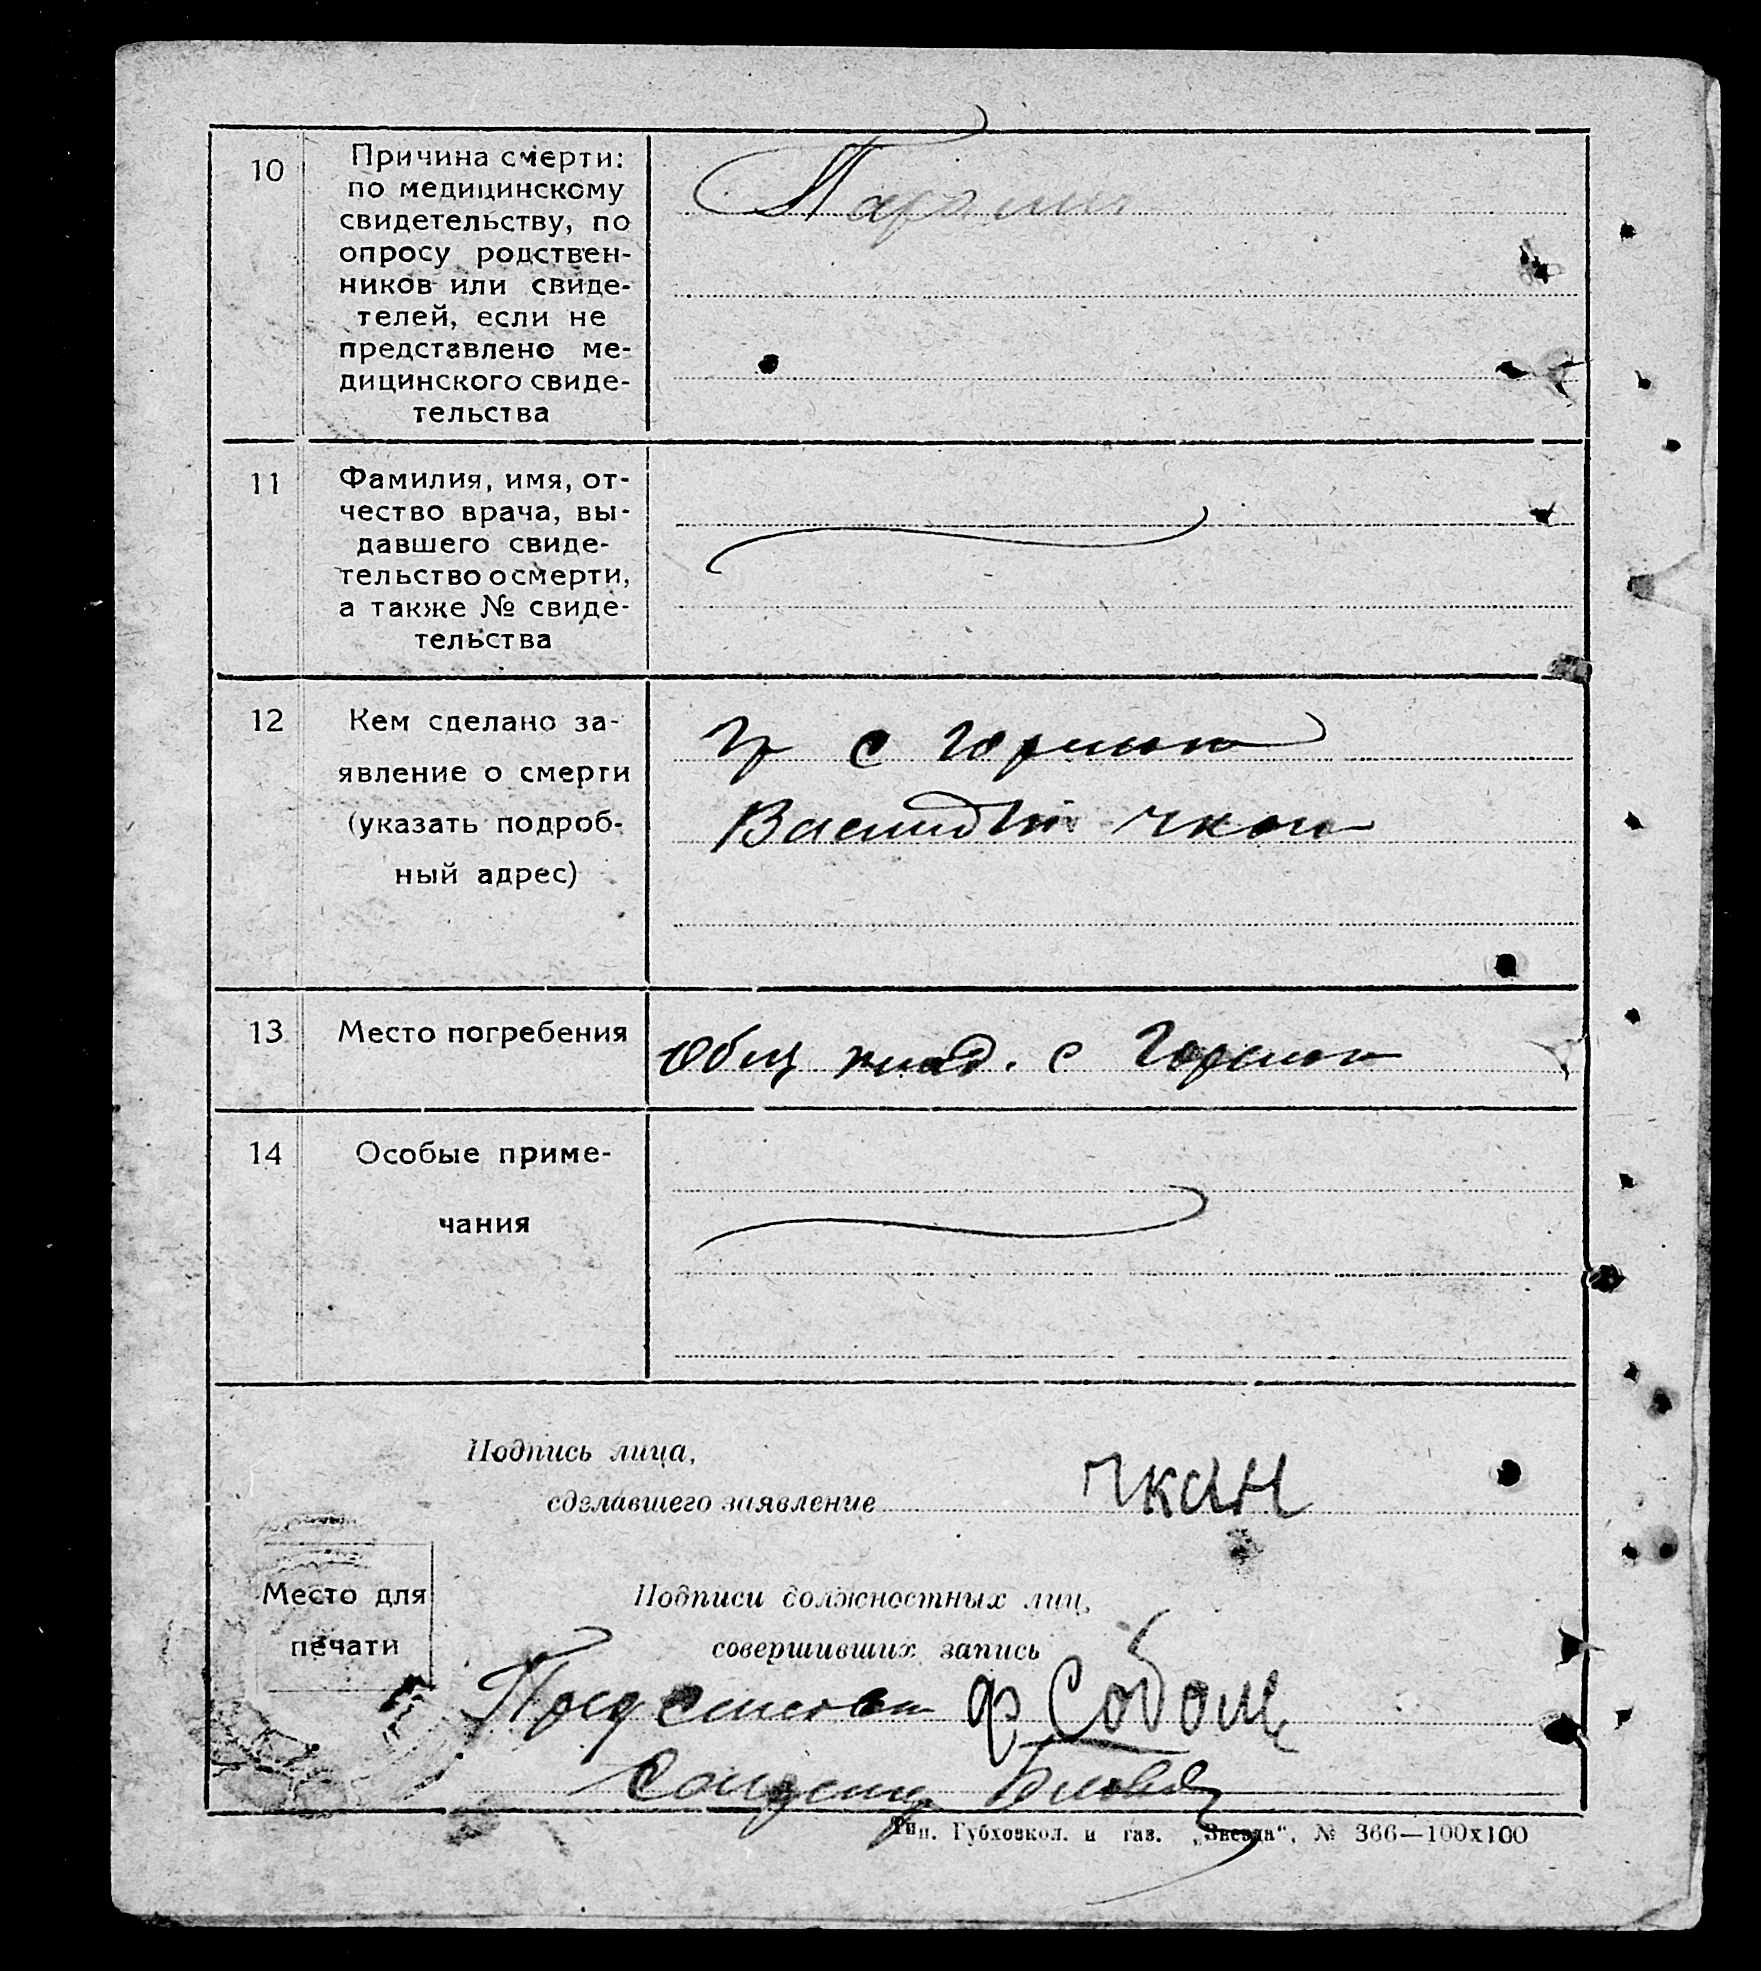 10
Причина смерти:
по медицинскому
свидетельству, по
опросу родствен-
ников или свиде-
телей, если не
представлено ме-
дицинского свиде-
тельства
11
Фамилия, имя, от-
чество врача, вы-
давшего свиде-
тельство о смерти,
а также № свиде-
тельства
12
Кем сделано за-
явление о смерти
(указать подроб-
ный адрес)
гр с
Чкан
13
Место погребения
Общ клад. с
14
Особые приме-
чания
Подпись лица,
сделавшего заявление
Чкан
Место для
печати
Подписи должностных лиц,
совершивших запись
Ф Соболь
Тип. Губховкол. и газ. „Звезда“, № 366—100х100